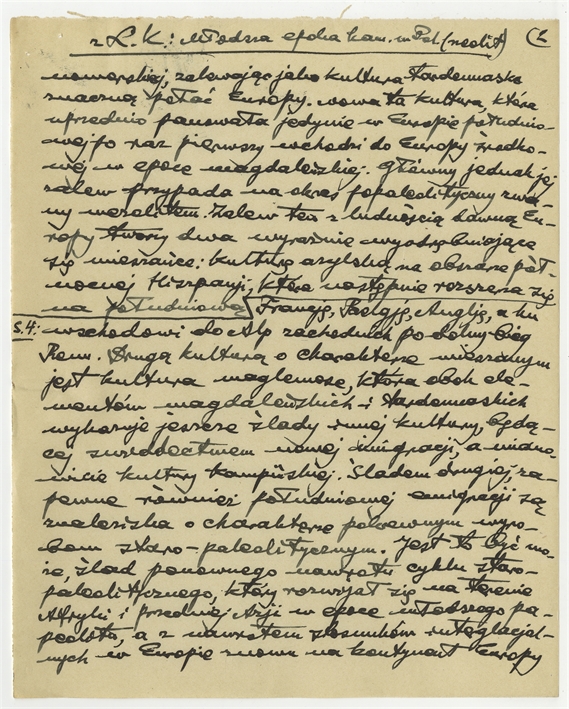 z L. K.: Młodsza epoka kam. w Pol. (neolit) (2
nomorskiej, zalewając jako kultura tardenuaska
znaczną połać Europy. Nowa ta kultura, która
uprzednio panowała jedynie w Europie południo-
wej po raz pierwszy wchodzi do Europy środko-
wej w epoce magdaleńskiej. Główny jednak jej
zalew przypada na okres popaleolityczny zwa-
ny mezolitem. Zalew ten z ludnością dawną Eu-
ropy tworzy dwa wyraźnie wyodrębniające
się mieszańce: kulturę azylską na obszarze pół-
nocnej Hiszpanji, która następnie rozszerza się
na południową Francję, Belgję, Anglję, a ku
s. 4: wschodowi do Alp zachodnich po dolny bieg
Renu. Drugą kulturą o charakterze mieszanym
jest kultura maglemose, która obok ele-
mentów magdaleńskich i tardenuaskich
wykazuje jeszcze ślady innej kultury, będą-
cej świadectwem nowej imigracji, a miano-
wicie kultury kampijskiej. Śladem drugiej, za-
pewne również południowej emigracji są
znaleziska o charakterze pokrewnym wyro-
bom staro-paleolitycznym. Jest to być mo-
że, ślad ponownego nawrotu cyklu staro-
paleolitycznego, który rozwijał się na terenie
Afryki i Przedniej Azji w epoce młodszego pa-
peolitu, a z nawrotem stosunków interglacjal-
nych w Europie znowu na kontynent Europy